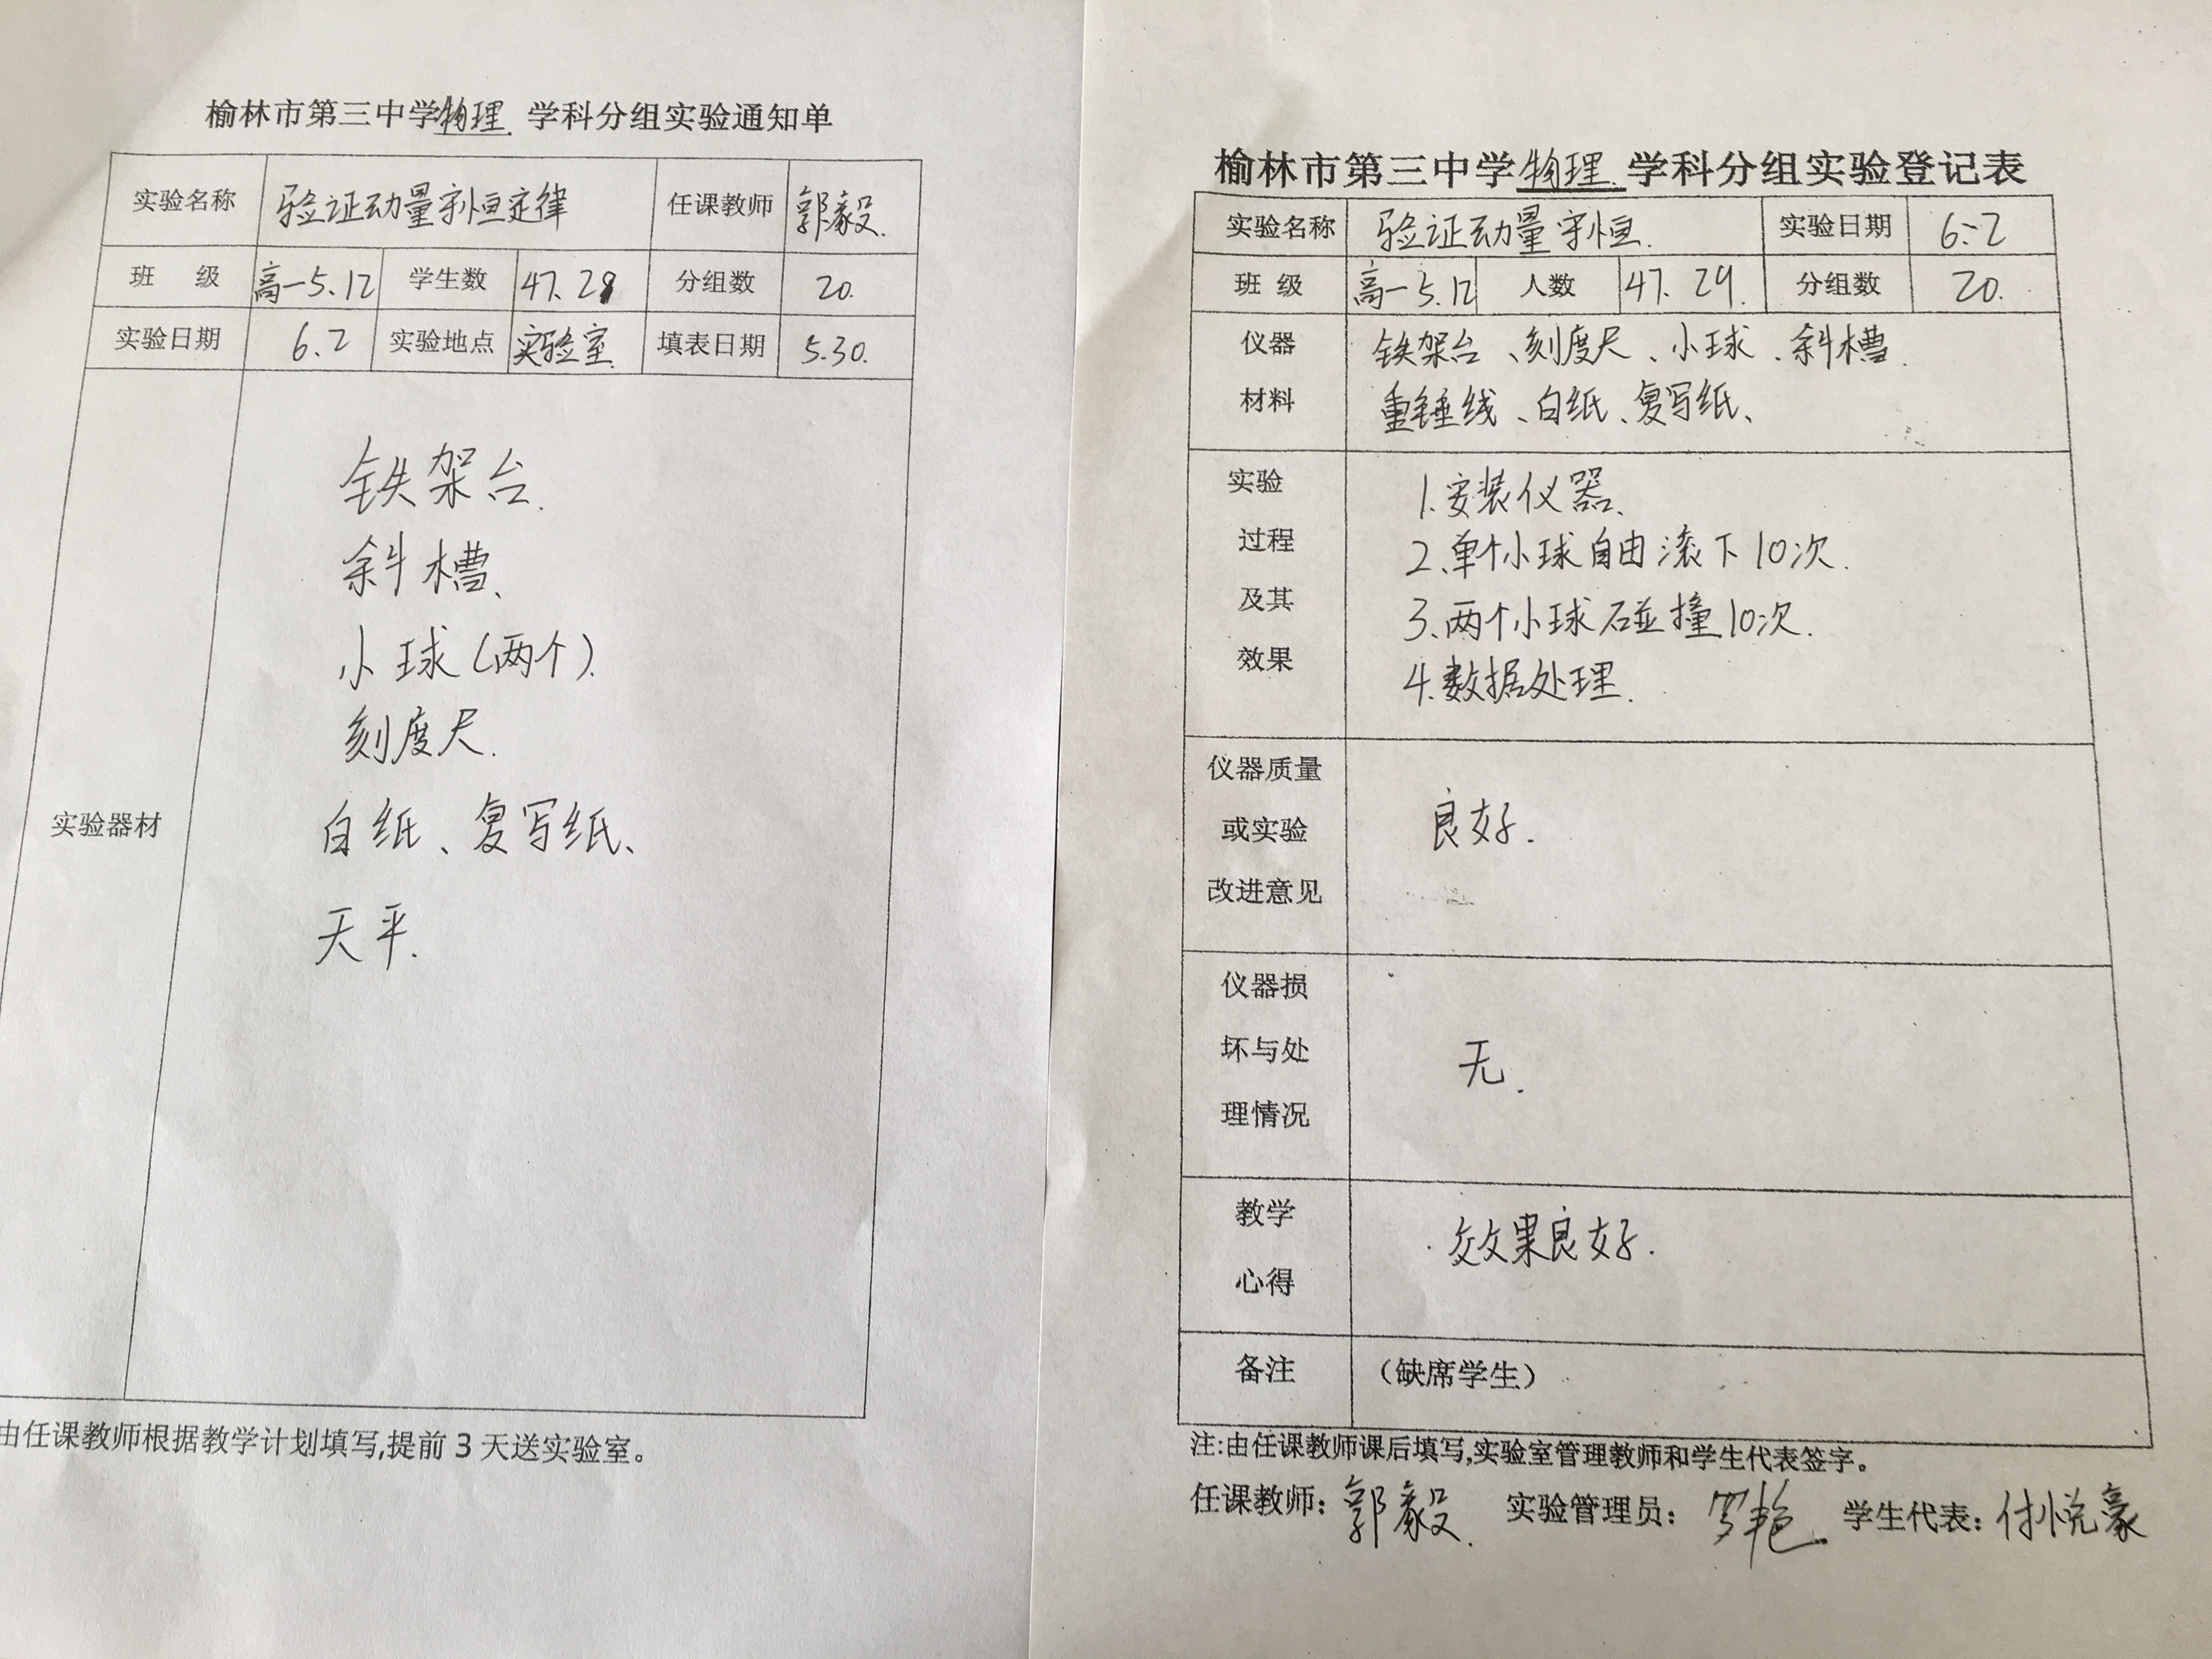 榆林市第三中学物理 学科分组实验通知单
实验名称 验证动量守恒定律 任课教师 郭毅.
班 级 高一5.12 学生数 47. 分组数 20.
实验日期 6.2 实验地点 实验室. 填表日期 5.30.
实验器材
铁架台.
斜槽、
小球(两个).
刻度尺.
白纸、复写纸、
天平.
由任课教师根据教学计划填写,提前3天送实验室。
榆林市第三中学物理.学科分组实验登记表
实验名称 验证动量守恒. 实验日期 6.2
班 级 高一5.12 人数 47. 29. 分组数 20.
仪器
材料
铁架台、刻度尺、小球、斜槽.
重锤线、白纸、复写纸、
实验
过程
及其
效果
1.安装仪器.
2、单个小球自由滚下10次.
3、两个小球碰撞10次.
4.数据处理.
仪器质量
或实验
改进意见
良好.
仪器损
坏与处
理情况
无.
教学
心得
效果良好.
备注 (缺席学生)
注:由任课教师课后填写,实验室管理教师和学生代表签字。
任课教师: 郭毅. 实验管理员: 罗艳. 学生代表: 付悦豪